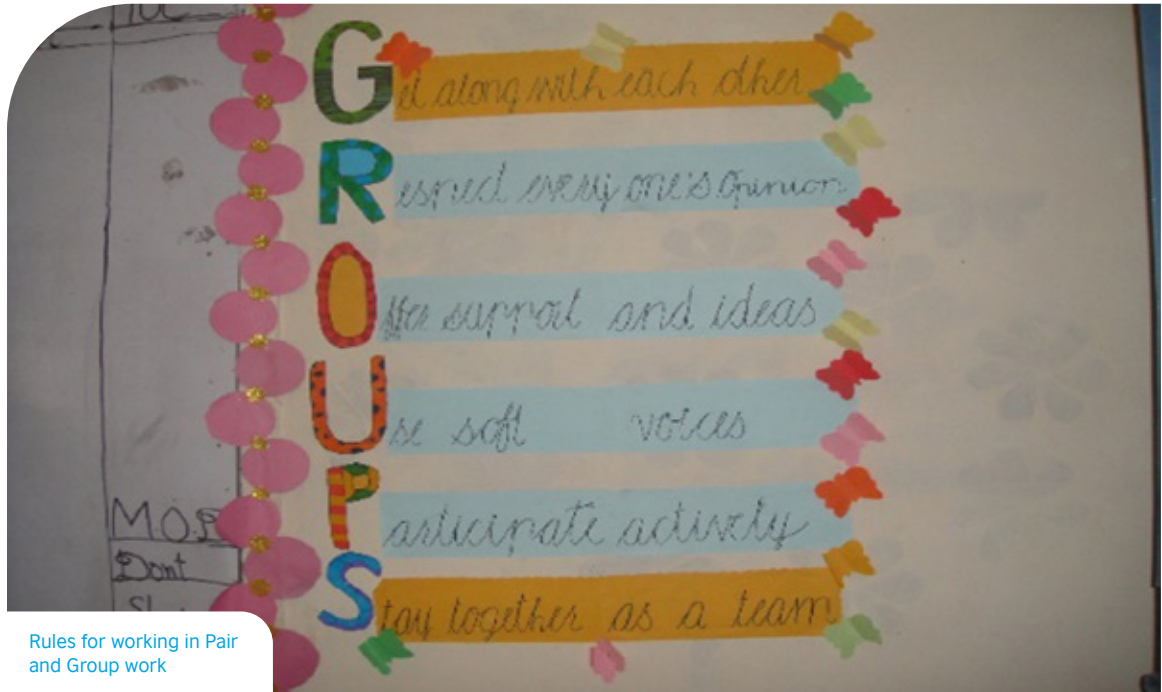 Get along with each other
Respect everyone's opinion
Offer support and ideas
Use soft voices
Participate actively
Stay together as a team
M.O.P
Dont
Rules for working in Pair
and Group work